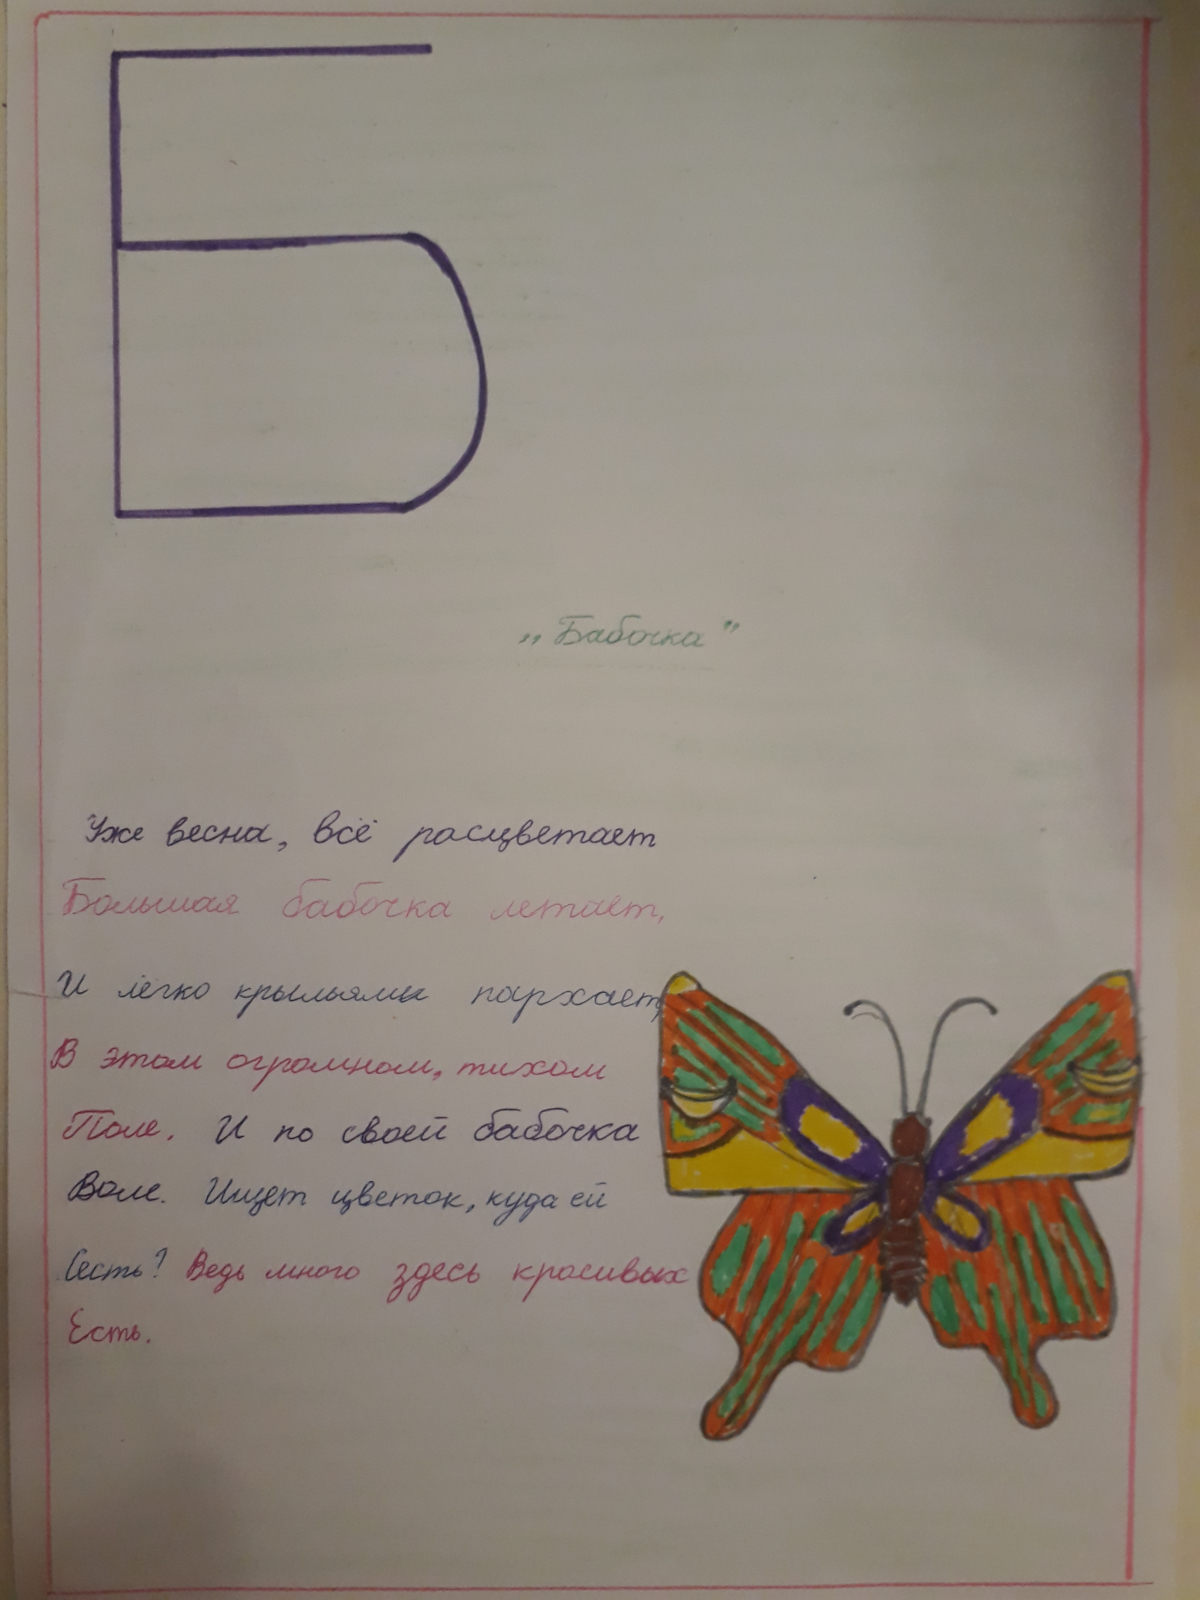 Б
„Бабочка"
Уже весна, всё расцветает
Большая бабочка летает,
И легко крыльями пархает,
В этом огромном, тихом
Поле. И по своей бабочка
Воле. Ищет цветок, куда ей
Сесть? Ведь много здесь красивых
Есть.